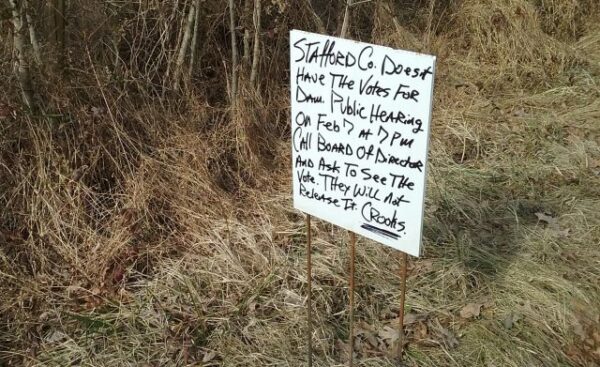 STAFFORD Co. Doesnt
HAVE THE VOTES FOR
DAM. PUBLIC HEARING
ON Feb 7 AT 7 PM
CAll BOARD OF DIRECTOR
AND ASK TO SEE THE
VOTE. THEY WILL NOT
RELEASE IT CROOKS.